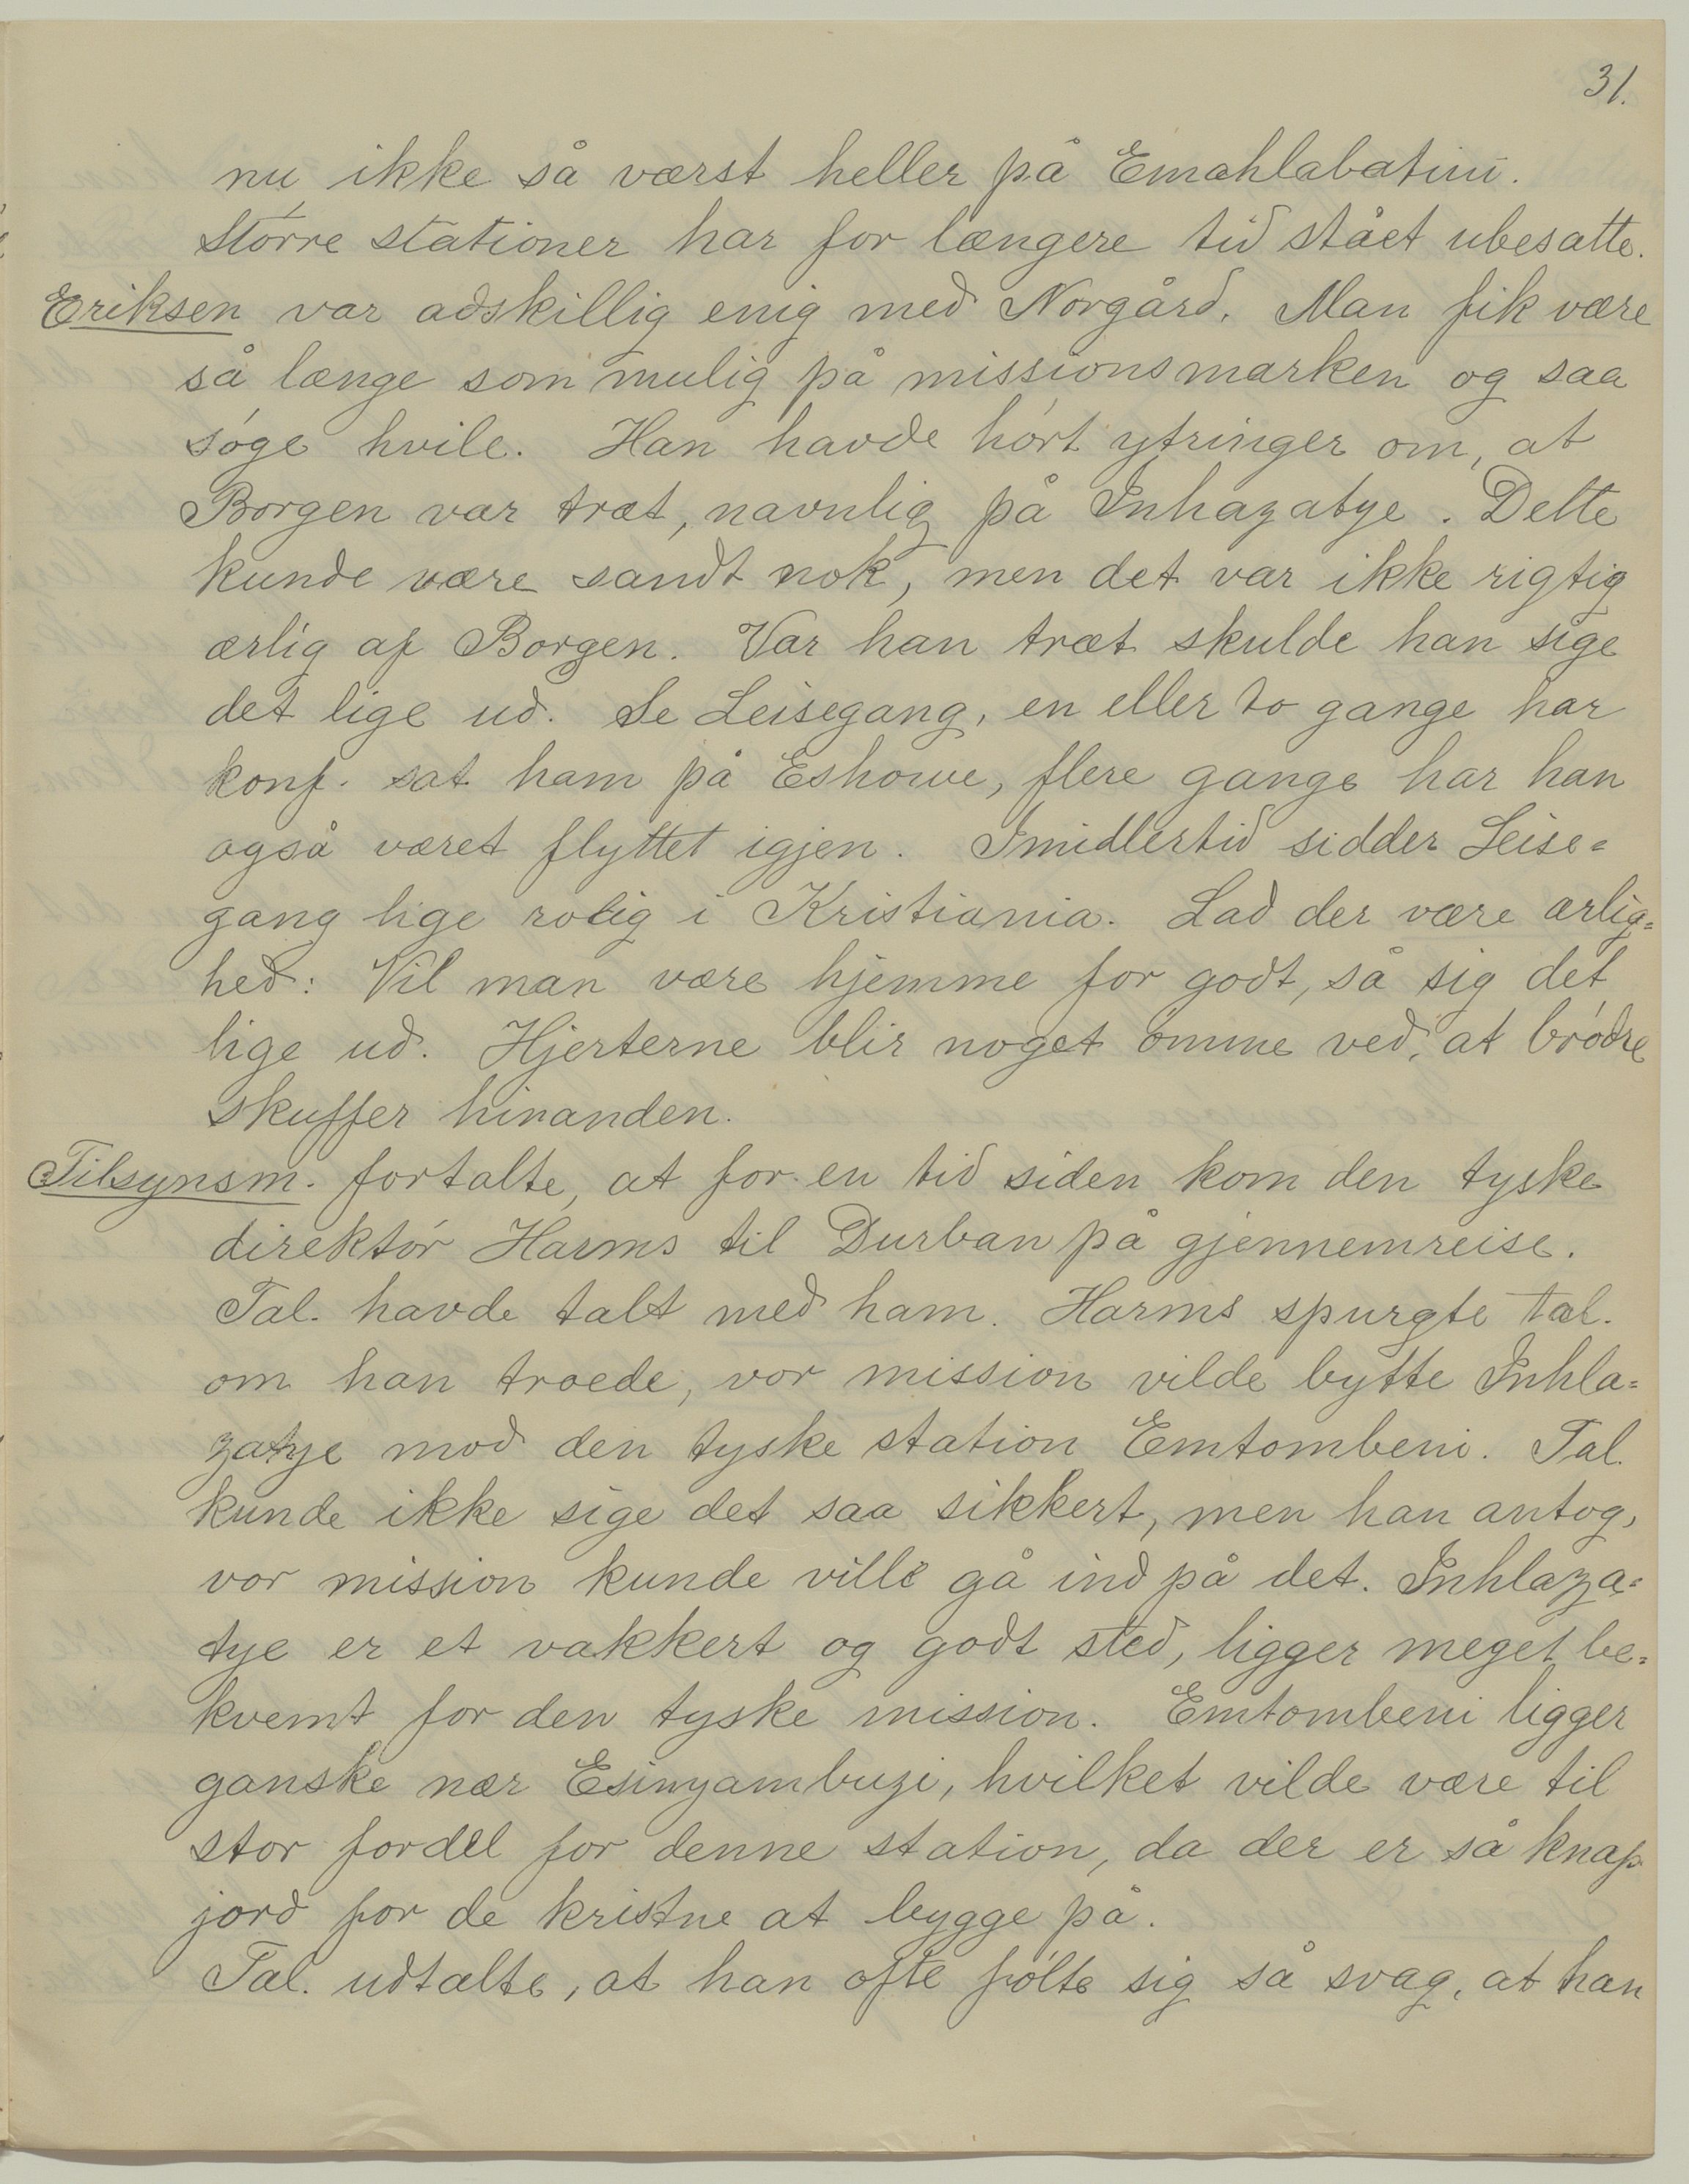 31.
nu ikke så værst heller på Emahlabatini.
Større stationer har for længere tid stået ubesatte.
Eriksen var adskillig enig med Norgård. Man fik være
så længe som mulig på missionsmarken og saa
søge hvile. Han havde hørt ytringer om, at
Borgen var træt, navnlig på Inhazatye. Dette
kunde være sandt nok, men det var ikke rigtig
ærlig af Borgen. Var han træt skulde han sige
det lige ud. Se Leisegang, en eller to gange har
konf. sat ham på Eshowe, flere gange har han
også været flyttet igjen. Imidlertid sidder Leise=
gang lige rolig i Kristiania. Lad der være ærlig=
hed: Vil man være hjemme for godt, så sig det
lige ud. Hjerterne blir noget ømme ved, at brødre
skuffer hinanden.
Tilsynsm. fortalte, at for en tid siden kom den tyske
direktør Harms til Durban på gjennemreise.
Tal. havde talt med ham. Harms spurgte tal.
om han troede, vor mission vilde bytte Inhla=
zatye mod den tyske station Emtombeni. Tal.
kunde ikke sige det saa sikkert, men han antog,
vor mission kunde ville gå ind på det. Inhlaza=
tye er et vakkert og godt sted, ligger meget be=
kvemt for den tyske mission. Emtombeni ligger
ganske nær Esinyambuzi, hvilket vilde være til
stor fordel for denne station, da der er så knap
jord for de kristne at bygge på.
Tal. udtalte, at han ofte følte sig så svag, at han